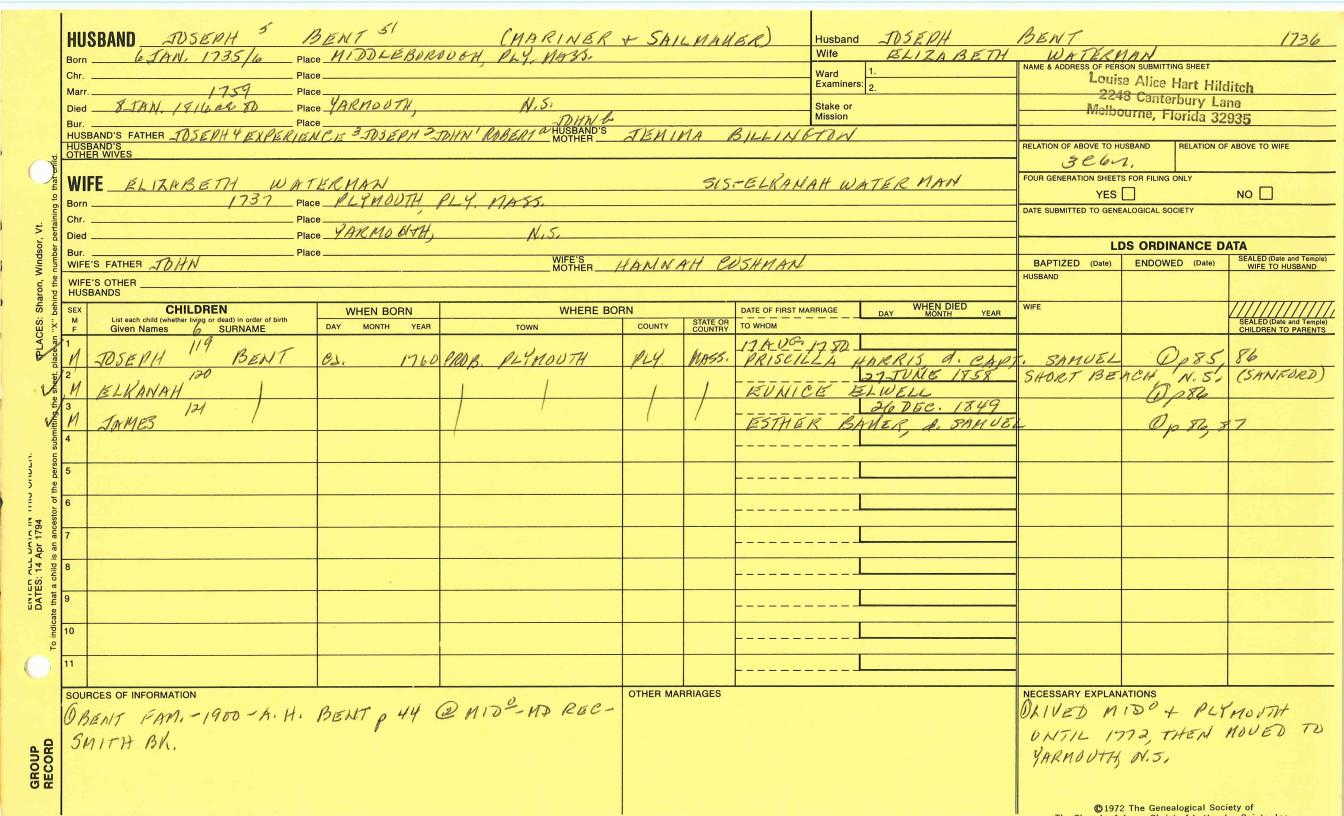 HUSBAND JOSEPH 5 BENT 51 (MARINER + SAILMAKER)
Born 6 JAN. 1735/6 Place MIDDLEBOROUGH, PLY. MASS.
Chr. Place
Marr. 1759 Place
Died 8 JAN. 1816 or 20 Place YARMOUTH, N.S.
Bur. Place
HUSBAND'S FATHER JOSEPH 4 EXPERIENCE 3 JOSEPH 2 JOHN 1 ROBERT a JOHN b HUSBAND'S MOTHER JEMIMA BILLINGTON
HUSBAND'S OTHER WIVES
Husband JOSEPH BENT 1736
Wife ELIZABETH WATERMAN
Ward Examiners: 1.
2.
Stake or Mission
NAME & ADDRESS OF PERSON SUBMITTING SHEET
Louise Alice Hart Hilditch
2248 Canterbury Lane
Melbourne, Florida 32935
RELATION OF ABOVE TO HUSBAND RELATION OF ABOVE TO WIFE
FOUR GENERATION SHEETS FOR FILING ONLY
YES NO
DATE SUBMITTED TO GENEALOGICAL SOCIETY
WIFE ELIZABETH WATERMAN SIS-ELKANAH WATERMAN
Born 1737 Place PLYMOUTH, PLY. MASS.
Chr. Place
Died Place YARMOUTH, N.S.
Bur. Place
WIFE'S FATHER JOHN WIFE'S MOTHER HANNAH CUSHMAN
WIFE'S OTHER HUSBANDS
LDS ORDINANCE DATA
BAPTIZED (Date) ENDOWED (Date) SEALED (Date and Temple) WIFE TO HUSBAND
HUSBAND
WIFE
SEALED (Date and Temple) CHILDREN TO PARENTS
SEX M F
CHILDREN
List each child (whether living or dead) in order of birth
Given Names 6 SURNAME
WHEN BORN
DAY MONTH YEAR
WHERE BORN
TOWN COUNTY STATE OR COUNTRY
DATE OF FIRST MARRIAGE
TO WHOM
WHEN DIED
DAY MONTH YEAR
1 M JOSEPH 119 BENT 1760 PROB. PLYMOUTH PLY. MASS. 17 AUG. 1780
PRISCILLA HARRIS, d. CAPT. SAMUEL ① p 85, 86
2 M ELKANAH 120 27 JUNE 1858 SHORT BEACH, N.S. (SANFORD)
EUNICE ELWELL ① p 86
3 M JAMES 121 26 DEC. 1849
ESTHER BAKER, d. SAMUEL ① p 86, 87
4
5
6
7
8
9
10
11
SOURCES OF INFORMATION
① BENT FAM. - 1900 - A. H. BENT p 44 ② MIDO - MD REC -
SMITH BK.
OTHER MARRIAGES
NECESSARY EXPLANATIONS
① LIVED MIDO + PLYMOUTH
UNTIL 1772, THEN MOVED TO
YARMOUTH, N.S.
©1972 The Genealogical Society of
PLACES: Sharon, Windsor, Vt.
DATES: 14 Apr 1794
To indicate that a child is an ancestor of the person submitting the sheet, place an "X" behind the number pertaining to that child.
GROUP RECORD